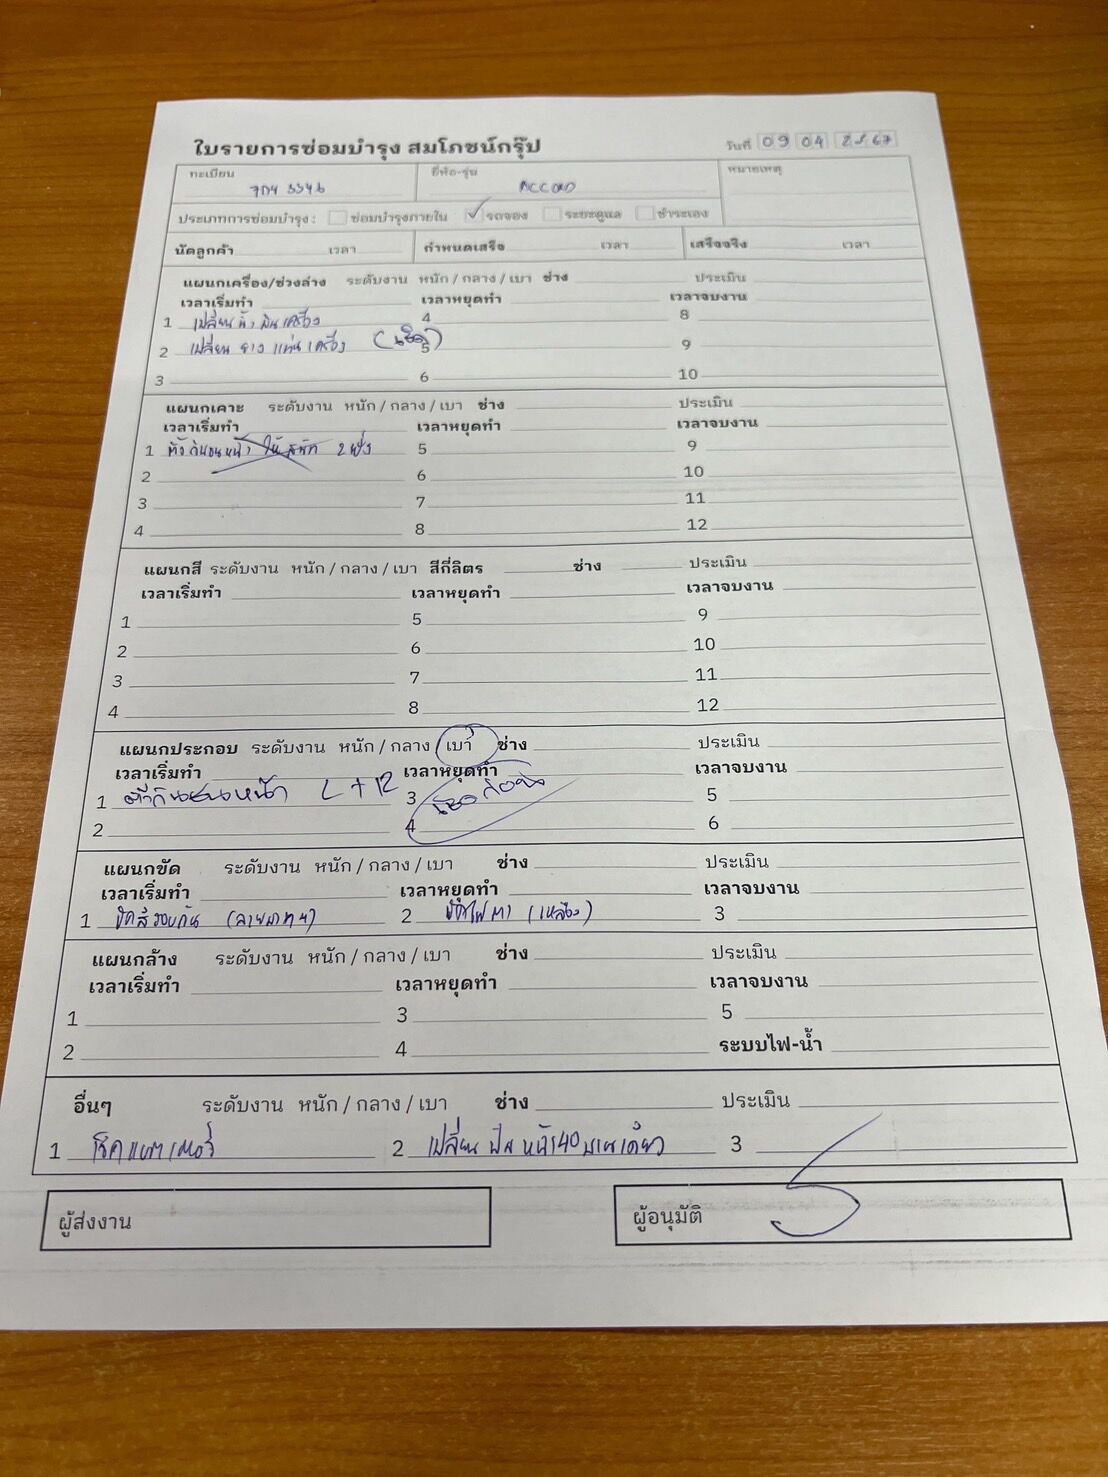 ใบรายการซ่อมบำรุง สมโภชน์กรุ๊ป
วันที่ 09 04 2567
ทะเบียน ยี่ห้อ-รุ่น หมายเหตุ
ACCORD
ประเภทการซ่อมบำรุง : ซ่อมบำรุงภายใน ✓ รถจอง ระยะดูแล ชำระเอง
นัดลูกค้า เวลา กำหนดเสร็จ เวลา เสร็จจริง เวลา
แผนกเครื่อง/ช่วงล่าง ระดับงาน หนัก / กลาง / เบา ช่าง ประเมิน
เวลาเริ่มทำ เวลาหยุดทำ เวลาจบงาน
1 เปลี่ยน เครื่อง 4 8
2 เปลี่ยน ยาง แท่น เครื่อง (เช็ค) 5 9
3 6 10
แผนกเคาะ ระดับงาน หนัก / กลาง / เบา ช่าง ประเมิน
เวลาเริ่มทำ เวลาหยุดทำ เวลาจบงาน
1 กันชนหน้า ให้สนิท 2 ฝั่ง 5 9
2 6 10
3 7 11
4 8 12
แผนกสี ระดับงาน หนัก / กลาง / เบา สีกี่ลิตร ช่าง ประเมิน
เวลาเริ่มทำ เวลาหยุดทำ เวลาจบงาน
1 5 9
2 6 10
3 7 11
4 8 12
แผนกประกอบ ระดับงาน หนัก / กลาง / เบา ช่าง ประเมิน
เวลาเริ่มทำ เวลาหยุดทำ เวลาจบงาน
1 กันชนหน้า L + R 3 5
2 4 6
แผนกขัด ระดับงาน หนัก / กลาง / เบา ช่าง ประเมิน
เวลาเริ่มทำ เวลาหยุดทำ เวลาจบงาน
1 ขัดสีรอบคัน 2 ขัดไฟตา (เหลือง) 3
แผนกล้าง ระดับงาน หนัก / กลาง / เบา ช่าง ประเมิน
เวลาเริ่มทำ เวลาหยุดทำ เวลาจบงาน
1 3 5
2 4 ระบบไฟ-น้ำ
อื่นๆ ระดับงาน หนัก / กลาง / เบา ช่าง ประเมิน
1 แบตเตอรี่ 2 เปลี่ยน หน้า 40 บานเดียว 3
ผู้ส่งงาน ผู้อนุมัติ